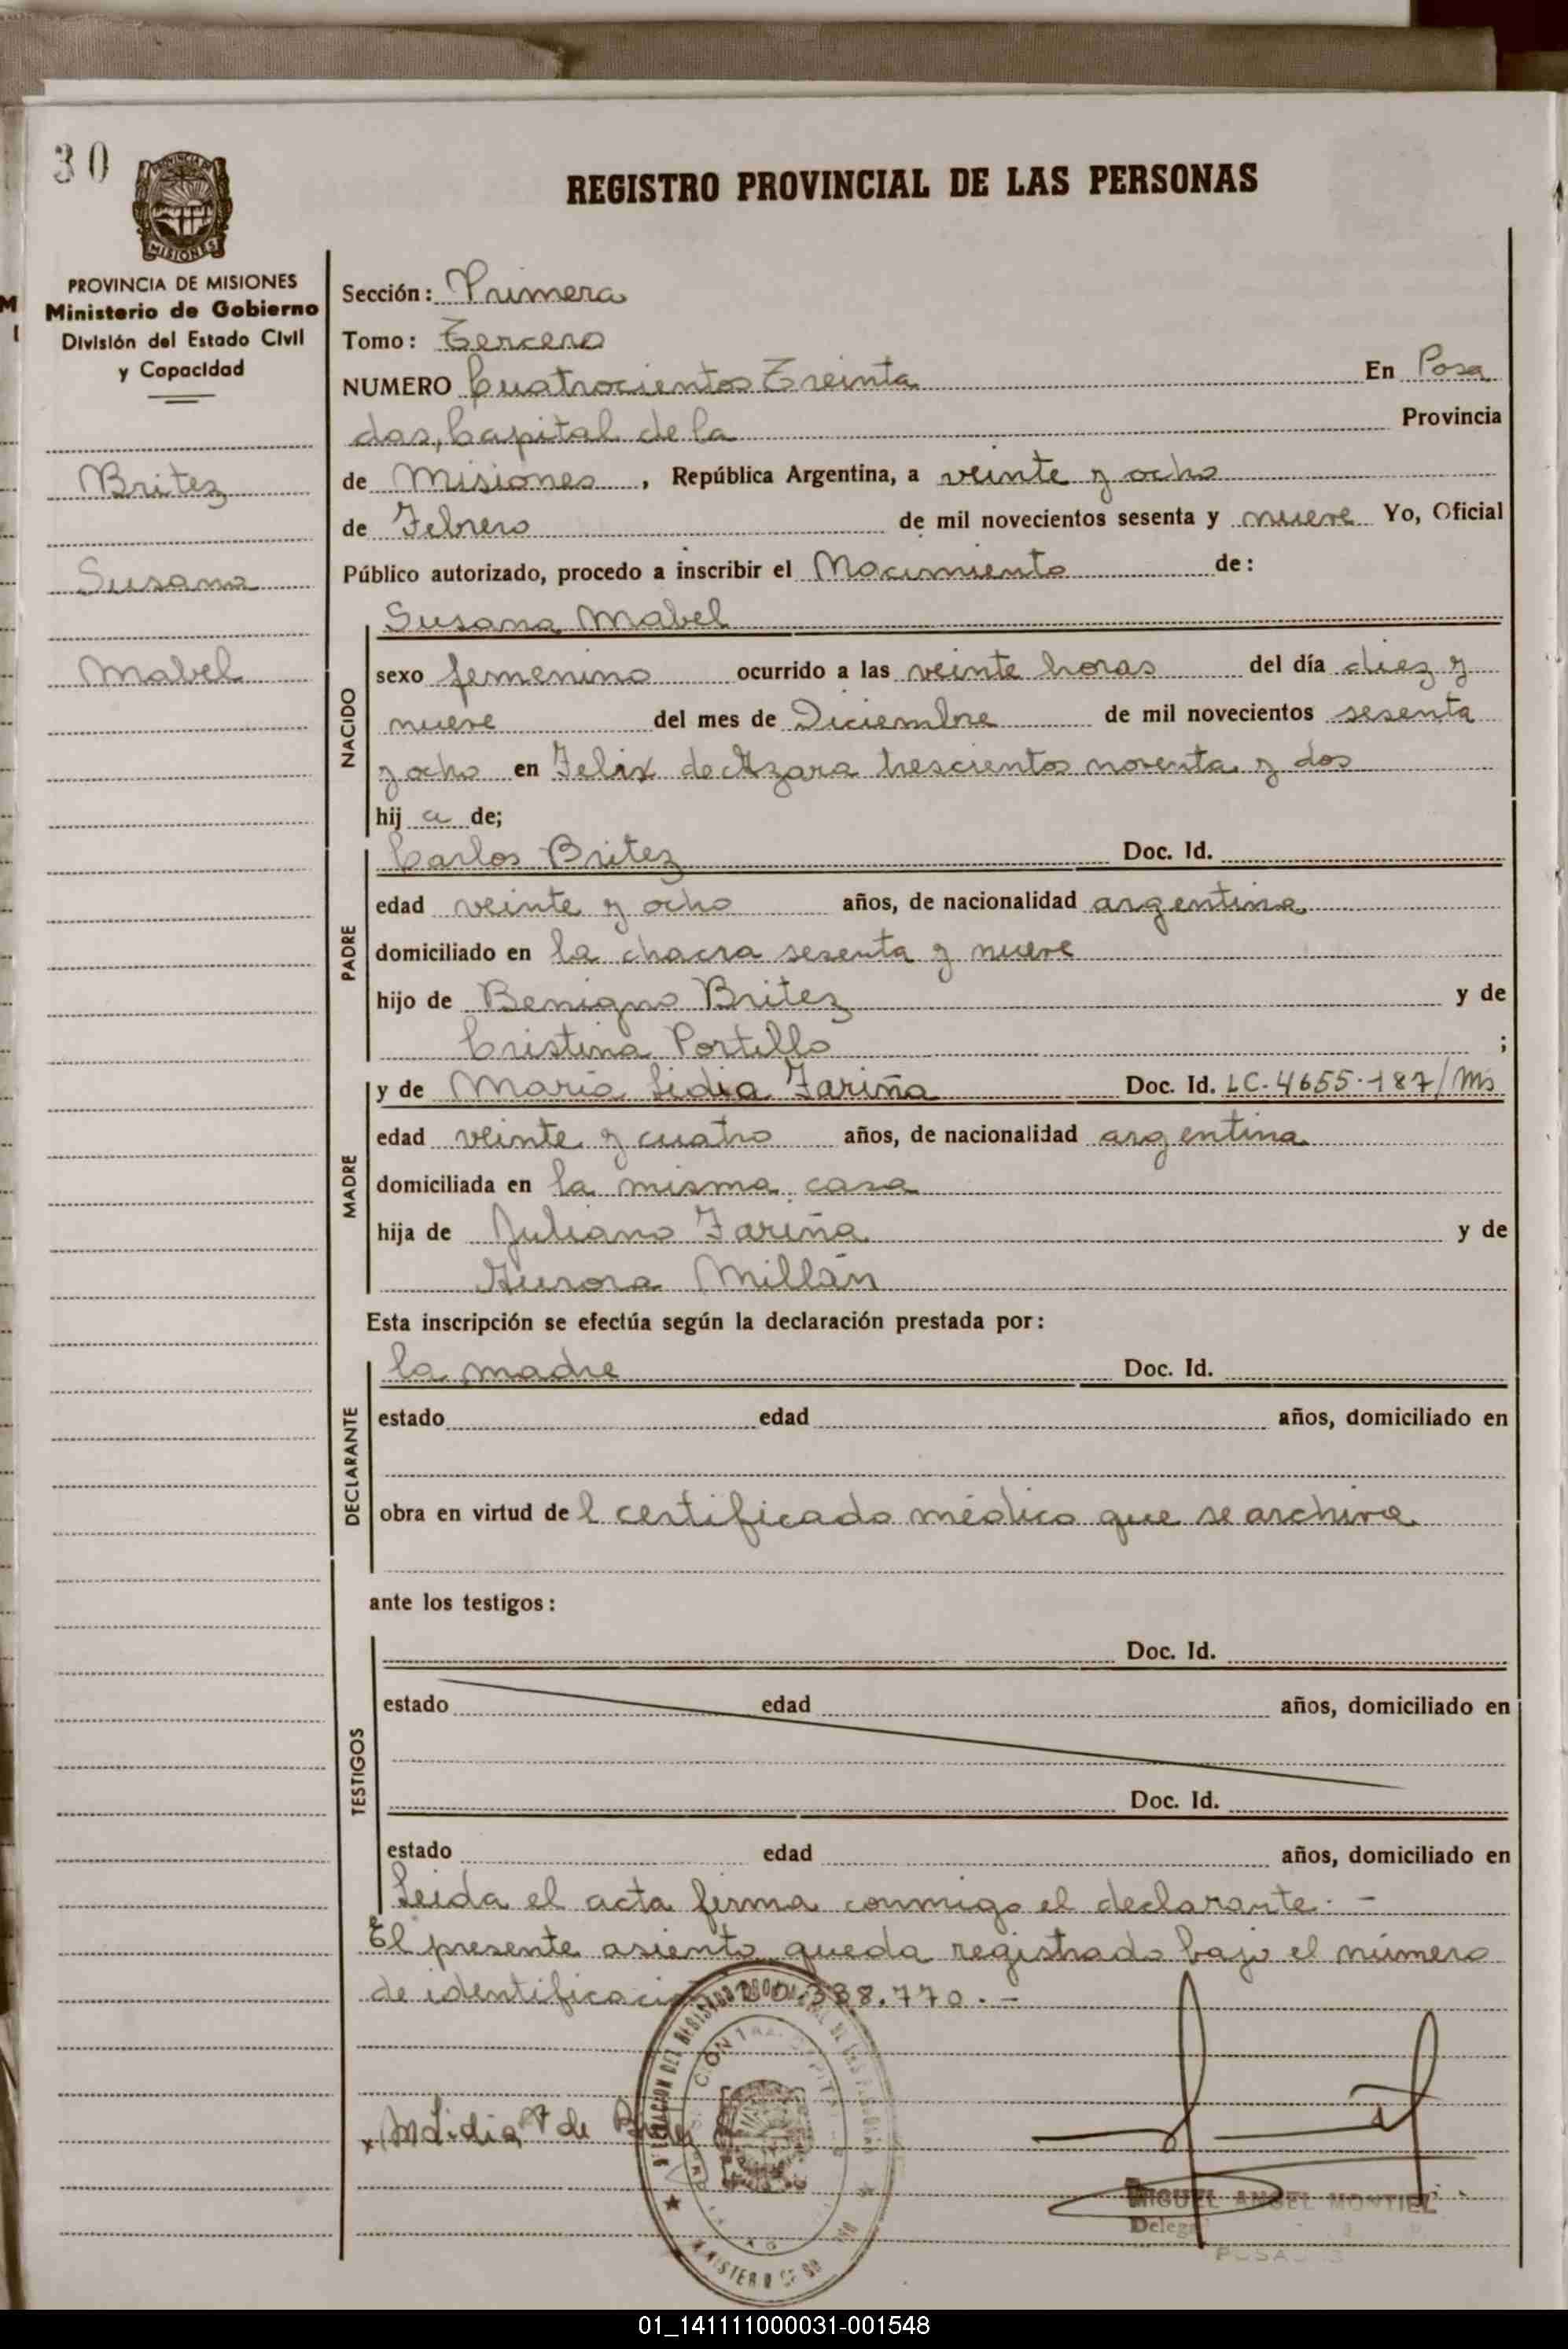 30
REGISTRO PROVINCIAL DE LAS PERSONAS
MISIONES
PROVINCIA DE MISIONES
Ministerio de Gobierno
División del Estado Civil
y Capacidad
Britez
Susana
Mabel
Sección: Primera
Tomo: Tercero
NUMERO Cuatrocientos Treinta En Posa
das, Capital de la Provincia
de Misiones, República Argentina, a veinte y ocho
de Febrero de mil novecientos sesenta y nueve Yo, Oficial
Público autorizado, procedo a inscribir el Nacimiento de:
NACIDO
Susana Mabel
sexo femenino ocurrido a las veinte horas del día diez y
nueve del mes de Diciembre de mil novecientos sesenta
y ocho en Felix de Azara trescientos noventa y dos
hij a de;
PADRE
Carlos Britez Doc. Id.
edad veinte y ocho años, de nacionalidad argentina
domiciliado en la chacra sesenta y nueve
hijo de Benigno Britez y de
Cristina Portillo ;
MADRE
y de María Lidia Fariña Doc. Id. LC-4655.187/Ms
edad veinte y cuatro años, de nacionalidad argentina
domiciliada en la misma casa
hija de Juliano Fariña y de
Aurora Millán
Esta inscripción se efectúa según la declaración prestada por:
DECLARANTE
la madre Doc. Id.
estado edad años, domiciliado en
obra en virtud de l certificado médico que se archiva
ante los testigos:
TESTIGOS
Doc. Id.
estado edad años, domiciliado en
Doc. Id.
estado edad años, domiciliado en
Leida el acta firma conmigo el declarante. -
El presente asiento queda registrado bajo el número
de identificación 20.338.770. -
MIGUEL ANGEL MONTIEL
01_141111000031-001548